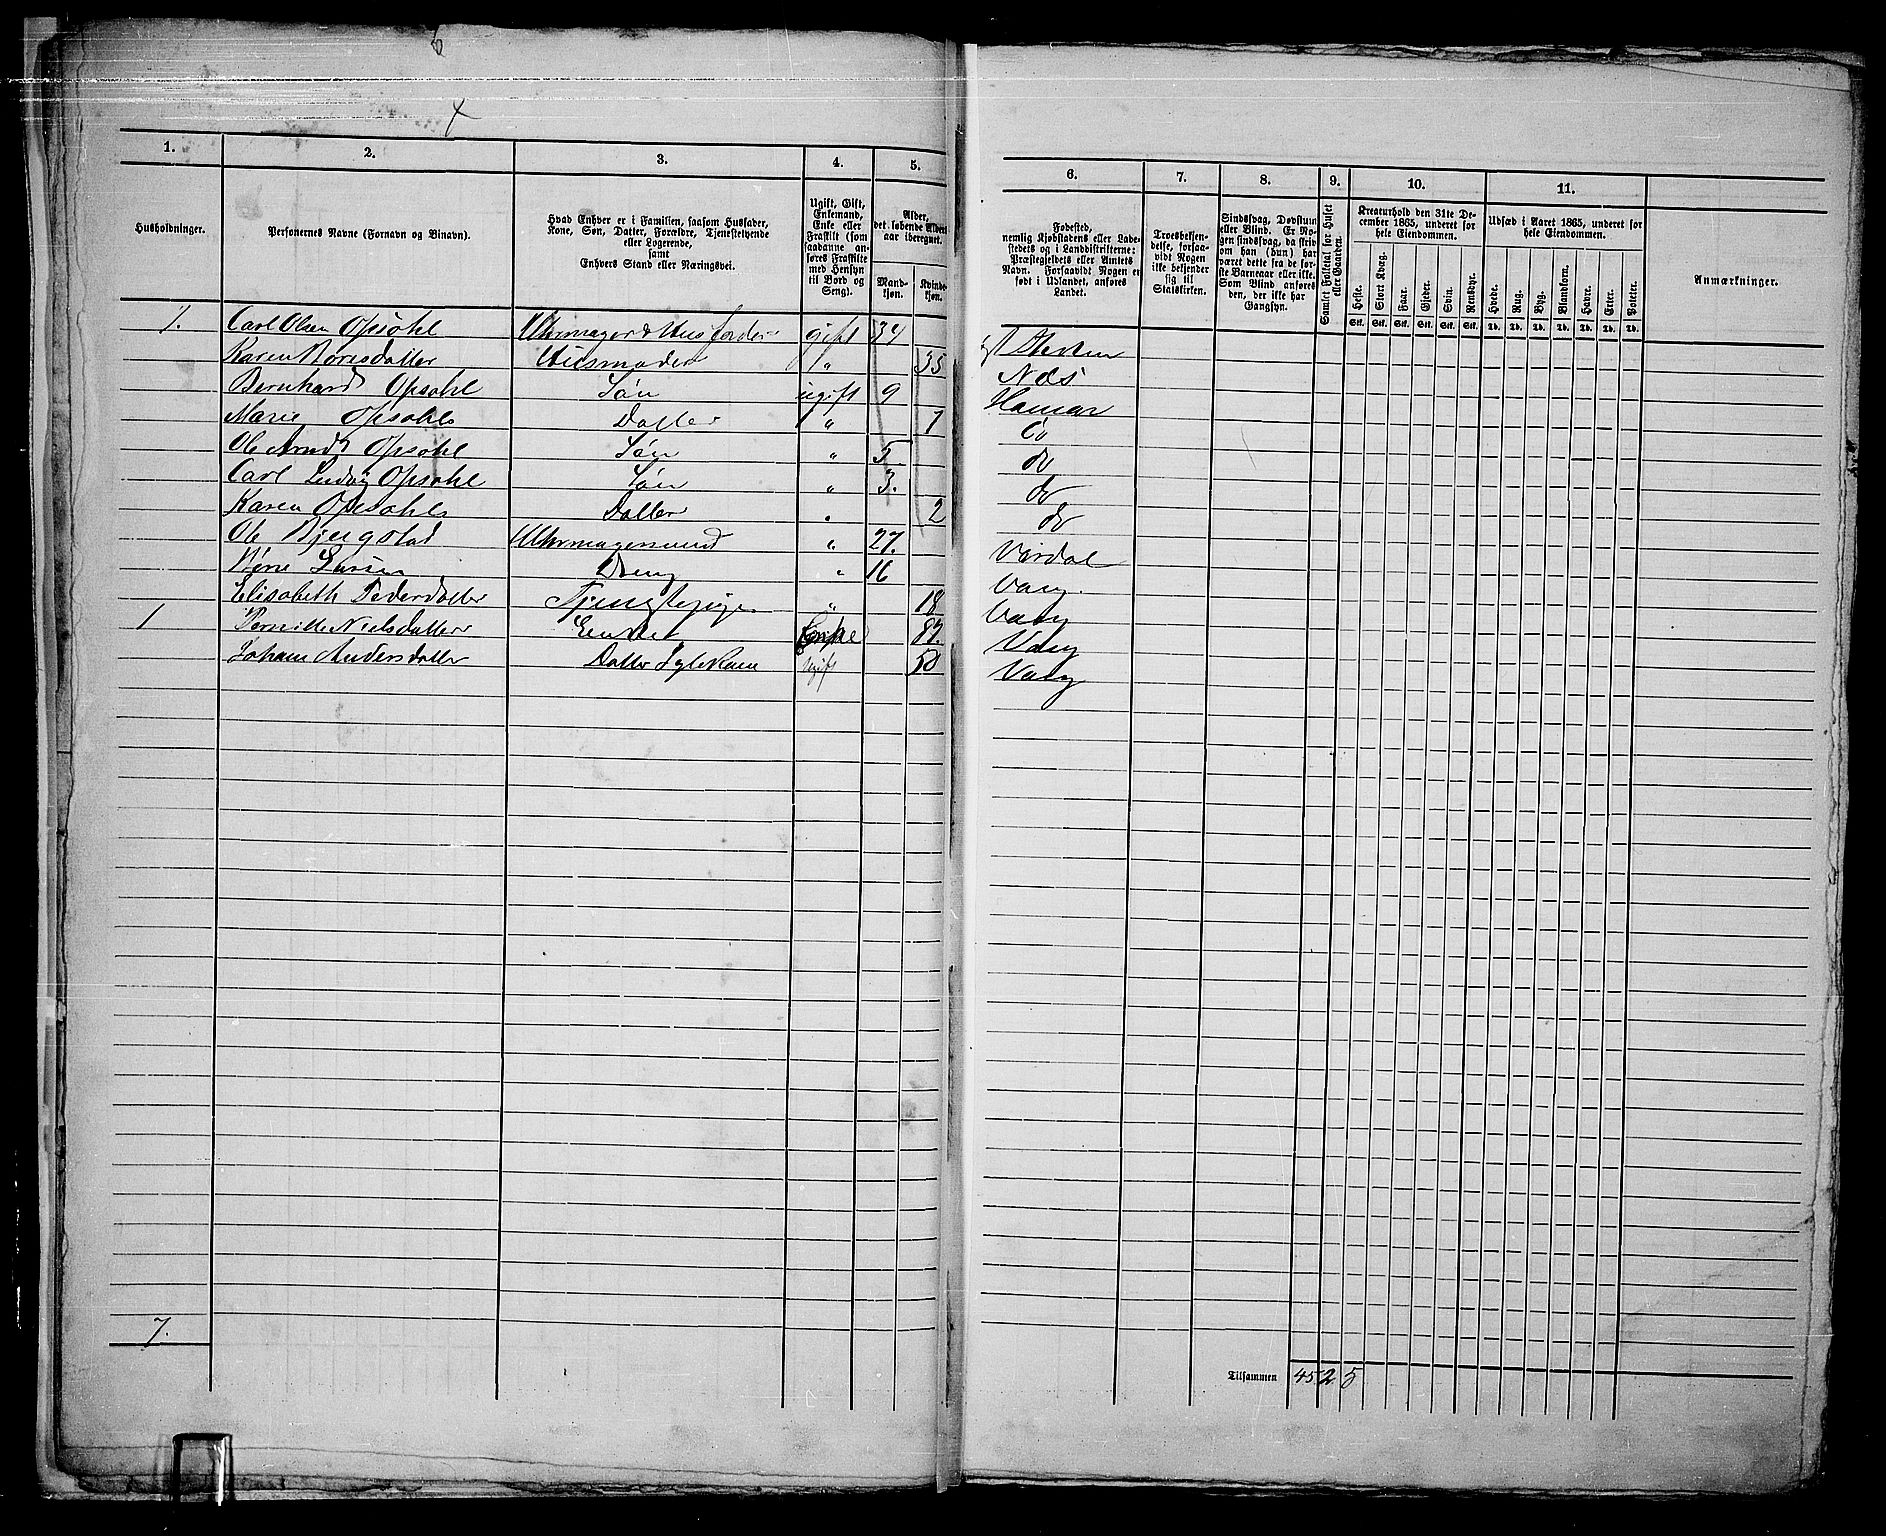 1.
2.
3.
4.
5.
Husholdninger.
Personernes Navne (Fornavn og Binavn).
Hvad Enhver er i Familien, saasom Husfader,
Kone, Søn, Datter, Forældre, Tjenestetyende
eller Logerende,
samt
Enhvers Stand eller Næringsvei.
Ugift, Gift,
Enkemand,
Enke eller
Fraskilt (som
saadanne an-
føres Fraskilte
med Hensyn
til Bord og
Seng).
Alder,
det løbende Alders-
aar iberegnet.
Mand-
kjøn.
Kvinde-
kjøn.
1. Carl Olsen Opsahl Uhrmager & Husfader gift 34
Karen Boresdatter Huusmoder " 35
Bernhard Opsahl Søn ugift 9
Marie Opsahl Datter " 7
Ole Arndt Opsahl Søn " 5
Carl Ludvig Opsahl Søn " 3.
Karen Opsahl Datter " 2
Ole Bjergstad Uhrmagersvend " 27.
Dreng " 16
Elisabeth Pedersdatter Tjenestepige " 18
1 Pernille Nielsdatter Enke 87.
Johane Andersdatter Datter Ugift 50
7.
6.
7.
8.
9.
10.
11.
Fødested,
nemlig Kjøbstadens eller Lade-
stedets og i Landdistrikterne:
Præstegjeldets eller Amtets
Navn. Forsaavidt Nogen er
født i Udlandet, anføres
Landet.
Troesbekjen-
delse, forsaa-
vidt Nogen
ikke bekjender
sig til
Statskirken.
Sindssvag, Døvstum
eller Blind. Er No-
gen sindssvag, da skriv
om han (hun) har
været dette fra de før-
ste Barneaar eller ikke.
Som Blind anføres
den, der ikke har
Gangsyn.
Samlet Folketal for Huset
eller Gaarden.
Kreaturhold den 31te De-
cember 1865, underet for
hele Eiendommen.
Udsæd i Aaret 1865, underet for
hele Eiendommen.
Anmærkninger.
Heste.
Stort Kvæg.
Faar.
Gjeder.
Svin.
Rensdyr.
Hvede.
Rug.
Byg.
Blandkorn.
Havre.
Erter.
Poteter.
Stk. Stk. Stk. Stk. Stk. Stk. Td. Td. Td. Td. Td. Td. Td.
Næs
Hamar
do
do
do
do
Værdal
Vang.
Vang
Vang
Vang
Tilsammen 45 2 5